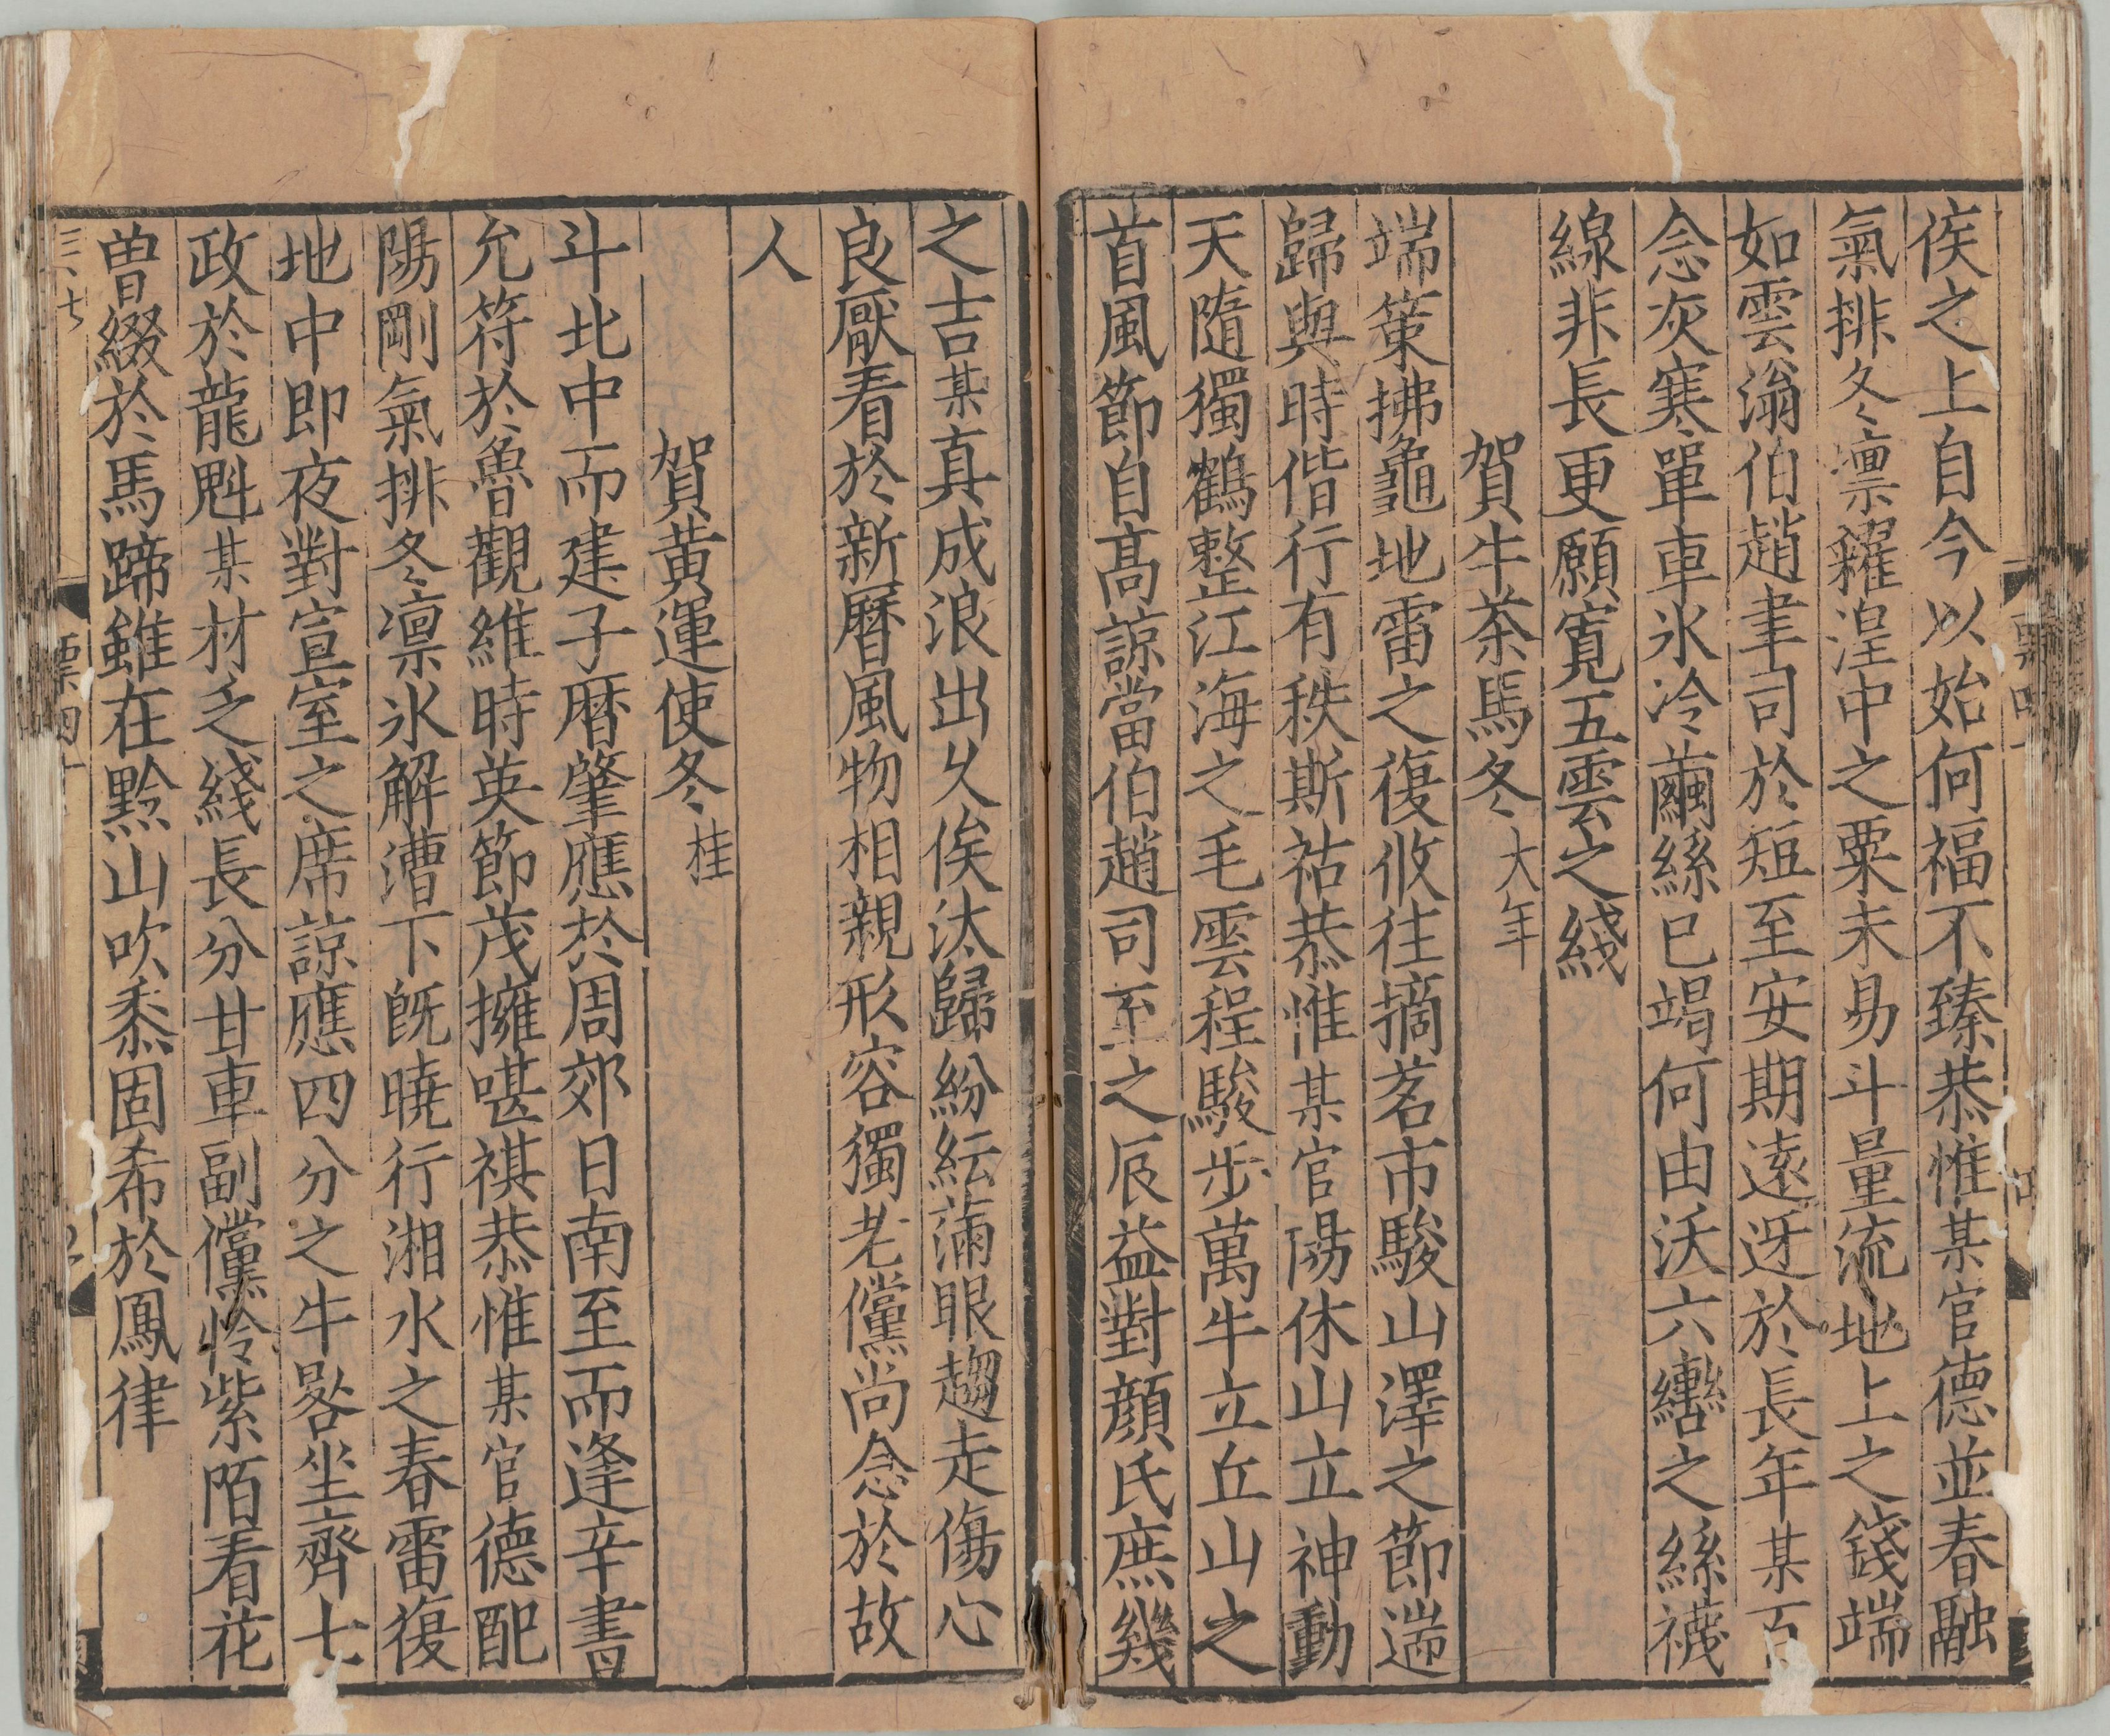 俟之上自今以始何福不臻恭惟某官德並春融
氣排冬凛糴湟中之粟未易斗量流地上之錢端
如雲滃伯趙聿司於短至安期遠迓於長年某百
念灰寒單車氷冷繭絲已竭何由沃六轡之絲襪
線非長更願寬五雲之綫
賀牛茶馬冬大年
端策拂龜地雷之復攸往摘茗市駿山澤之節遄
歸與時偕行有秩斯祜恭惟某官陽休山立神動
天隨獨鶴整江海之毛雲程駿步萬牛立丘山之
首風節自高諒當伯趙司至之辰益對顔氏庶幾
之吉某真成浪出久俟汰歸紛紜滿眼趨走傷心
良厭看於新曆風物相親形容獨老儻尚念於故
人
賀黄運使冬桂
斗北中而建子曆肇應於周郊日南至而逢辛書
允符於魯觀維時英節茂擁堪祺恭惟某官德配
陽剛氣排冬凛氷解漕下旣曉行湘水之春雷復
地中即夜對宣室之席諒應四分之牛晷坐齊七
政於龍魁某材乏綫長分甘車副儻怜紫陌看花
曽綴於馬蹄雖在黔山吹黍固希於鳳律